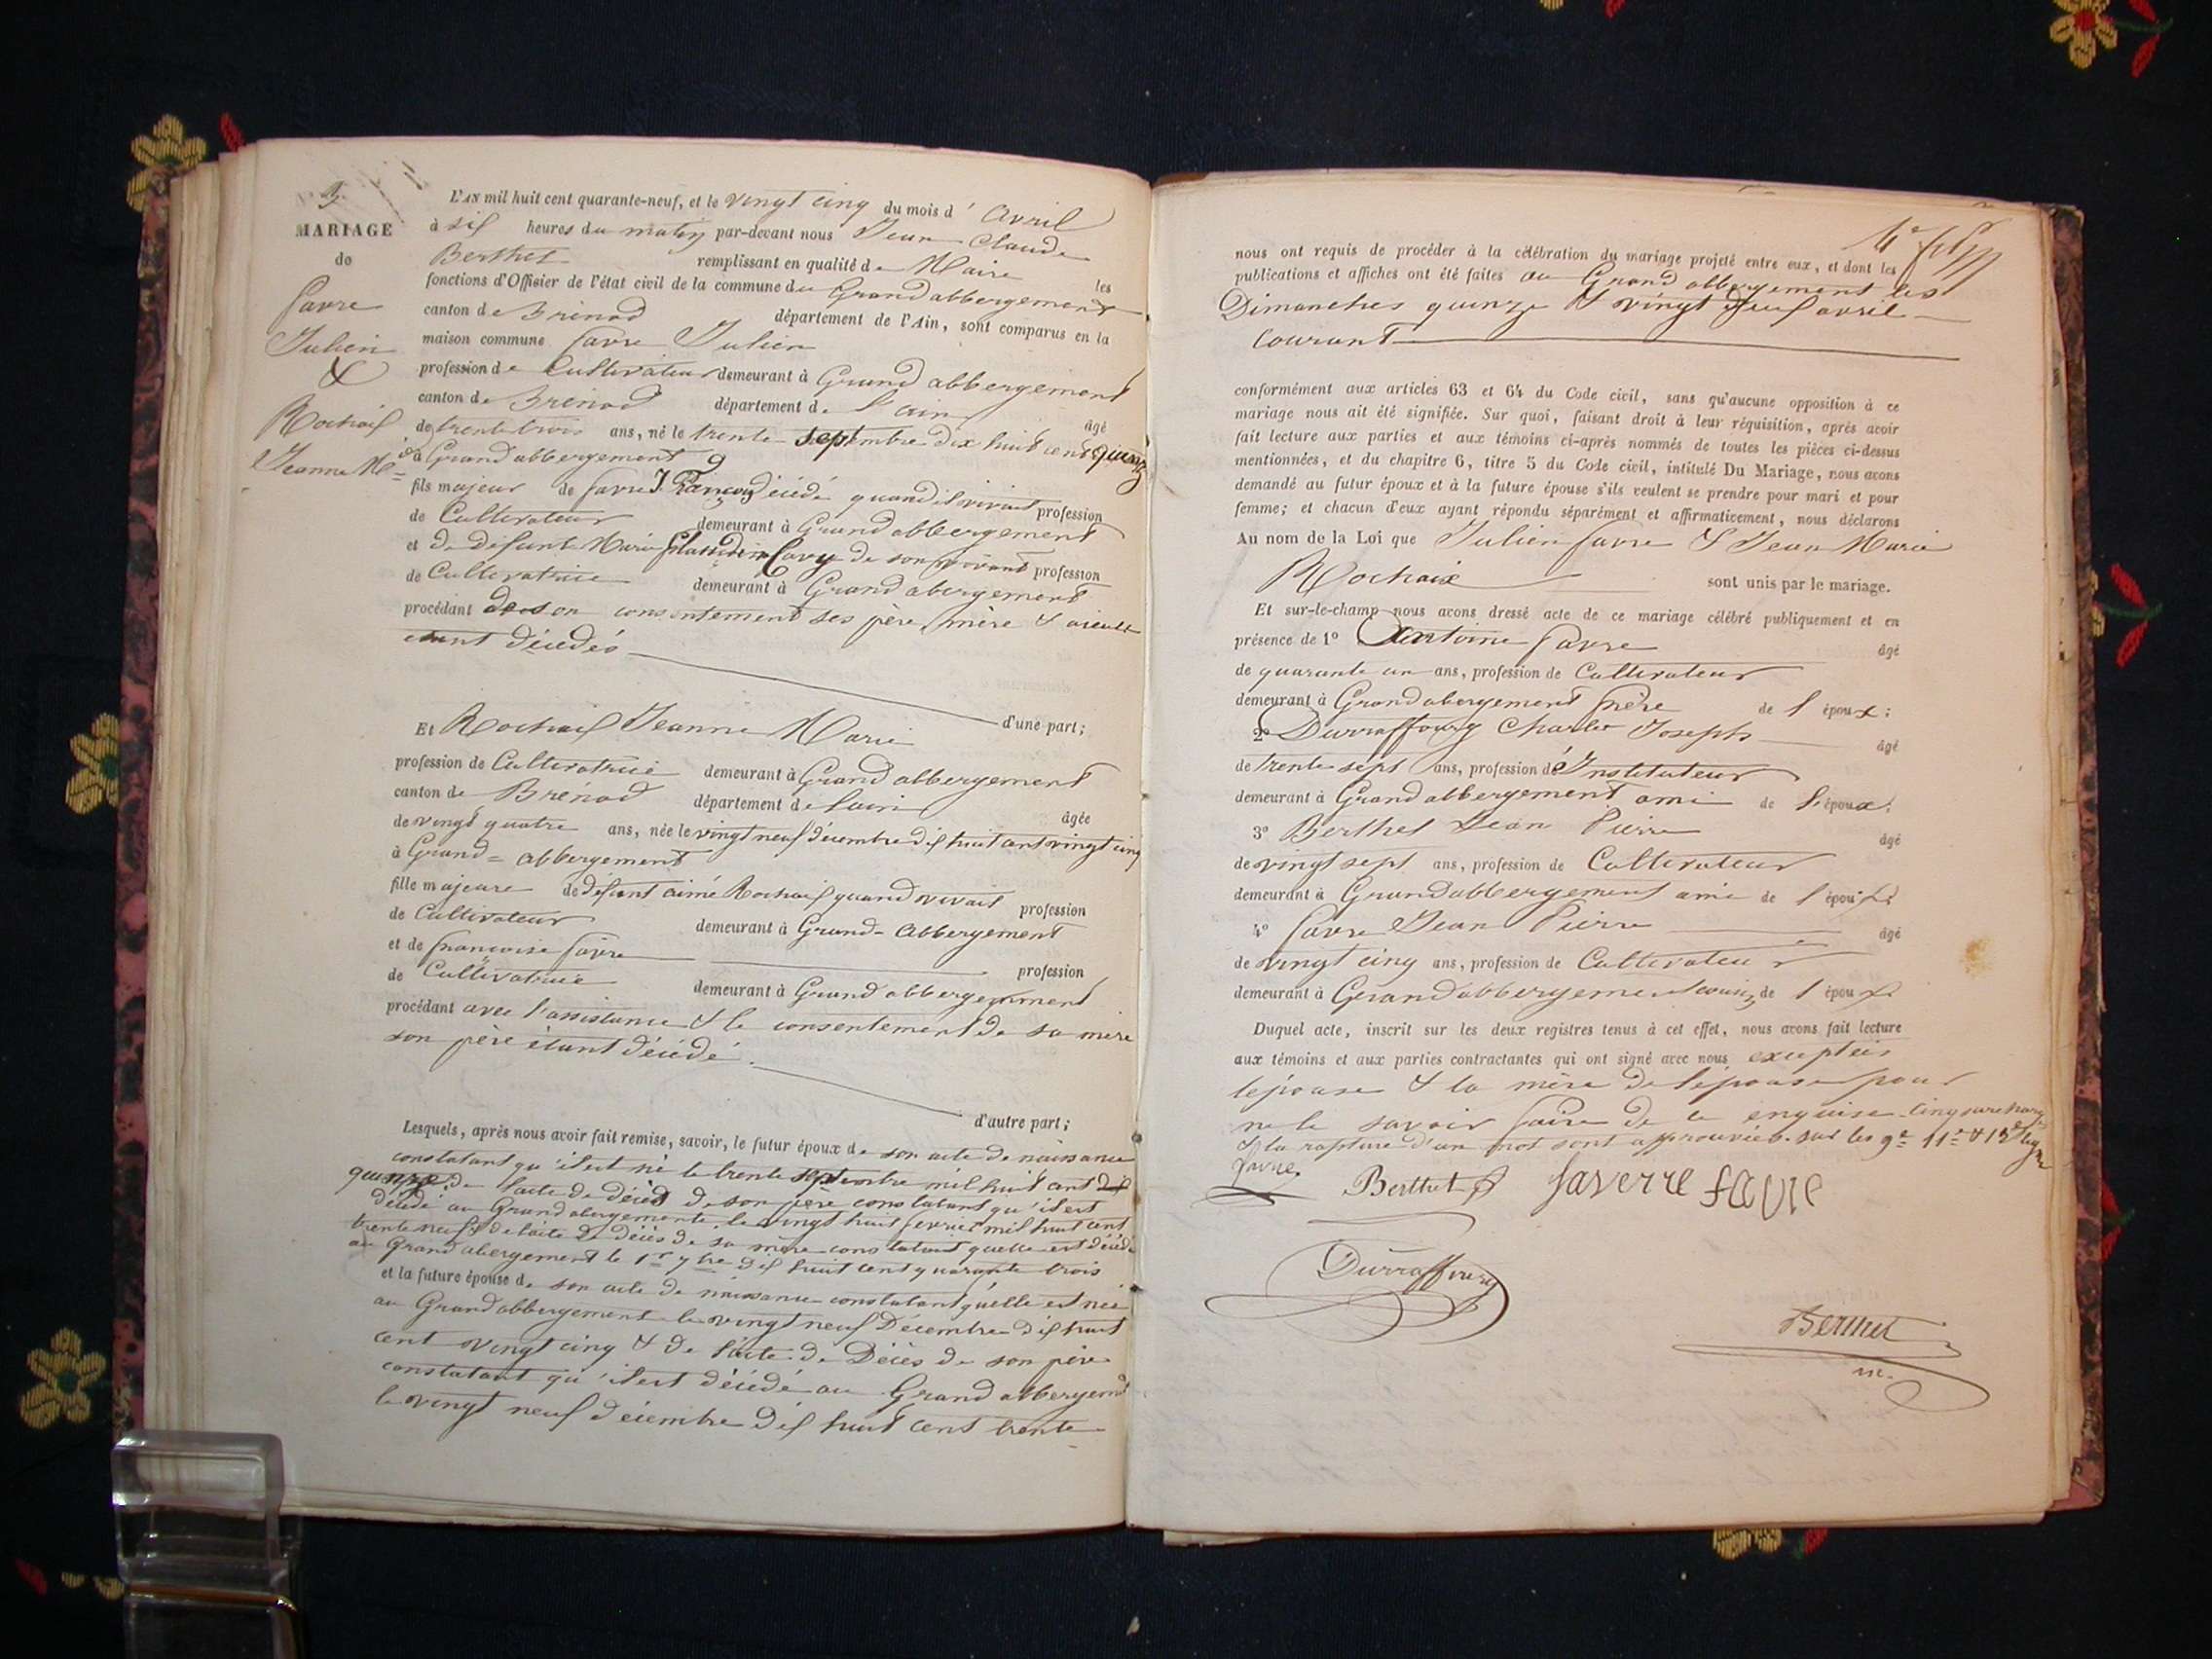 MARIAGE
de
favre
Julien
&
Rochaix
Jeanne Me
L'AN mil huit cent quarante-neuf, et le vingt cinq du mois d'avril
à six heures du matin par-devant nous Jean Claude
Berthet remplissant en qualité de Maire les
fonctions d'Officier de l'état civil de la commune du Grand abbergement
canton de Brénod département de l'Ain, sont comparus en la
maison commune favre Julien
profession de Cultivateur demeurant à Grand abbergement
canton de Brénod département de l'ain âgé
de trente trois ans, né le trente septembre dix huit cent quinze
à Grand abbergement
fils majeur de favre J. françois décédé quand il vivait profession
de Cultivateur demeurant à Grand abbergement
et de défunte Marie Claudine Cary de son vivant profession
de Cultivatrice demeurant à Grand abergement
procédant de son consentement ses père, mère & aieuls
étant décédés
d'une part;
Et Rochaix Jeanne Marie
profession de Cultivatrice demeurant à Grand abbergement
canton de Brénod département de l'ain âgée
de vingt quatre ans, née le vingt neuf décembre dix huit cent vingt cinq
à Grand-abbergement
fille majeure de défunt aimé Rochaix quand vivait profession
de Cultivateur demeurant à Grand-Abbergement
et de françoise favre profession
de Cultivatrice demeurant à Grand abbergement
procédant avec l'assistance & le consentement de sa mère
son père étant décédé.
d'autre part;
Lesquels, après nous avoir fait remise, savoir, le futur époux de son acte de naissance
constatant qu'il est né le trente septembre mil huit cent dix
quinze de l'acte de décès de son père constatant qu'il est
décédé au Grand abergement le vingt huit fevrier mil huit cent
trente neuf & de l'acte de décès de sa mère constatant quelle est décédé
au Grand abergement le 1er 7bre dix huit cent quarante trois
et la future épouse de son acte de naissance constatant qu'elle est née
au Grand abbergement le vingt neuf Décembre dix huit
cent vingt cinq & de l'acte de Décès de son père
constatant qu'il est décédé au Grand abbergemt
le vingt neuf décembre dix huit cent trente
nous ont requis de procéder à la célébration du mariage projeté entre eux, et dont les
publications et affiches ont été faites au Grand abbergement les
Dimanches quinze & vingt deux avril
courant
conformément aux articles 63 et 64 du Code civil, sans qu'aucune opposition à ce
mariage nous ait été signifiée. Sur quoi, faisant droit à leur réquisition, après avoir
fait lecture aux parties et aux témoins ci-après nommés de toutes les pièces ci-dessus
mentionnées, et du chapitre 6, titre 5 du Code civil, intitulé Du Mariage, nous avons
demandé au futur époux et à la future épouse s'ils veulent se prendre pour mari et pour
femme; et chacun d'eux ayant répondu séparément et affirmativement, nous déclarons
Au nom de la Loi que Julien favre & Jean Marie
Rochaix sont unis par le mariage.
Et sur-le-champ nous avons dressé acte de ce mariage célébré publiquement et en
présence de 1° Antoine favre âgé
de quarante un ans, profession de Cultivateur
demeurant à Grand abergement frère de l'époux;
2° Durraffourg Charles Joseph âgé
de trente sept ans, profession d'Instituteur
demeurant à Grand abbergement ami de l'époux;
3° Berthet Jean Pierre âgé
de vingt sept ans, profession de Cultivateur
demeurant à Grand abbergement ami de l'époux
4° favre Jean Pierre âgé
de vingt cinq ans, profession de Cultivateur
demeurant à Grand abbergement cousin de l'époux
Duquel acte, inscrit sur les deux registres tenus à cet effet, nous avons fait lecture
aux témoins et aux parties contractantes qui ont signé avec nous exceptées
l'épouse & la mère de l'épouse pour
ne le savoir faire de ce enquise. Cinq surcharges
& la rapture d'un mot sont approuvées. sur les 9e 11e & 15e lignes
favre
Berthet
faverre
favre
Durraffourg
Berthet
m.